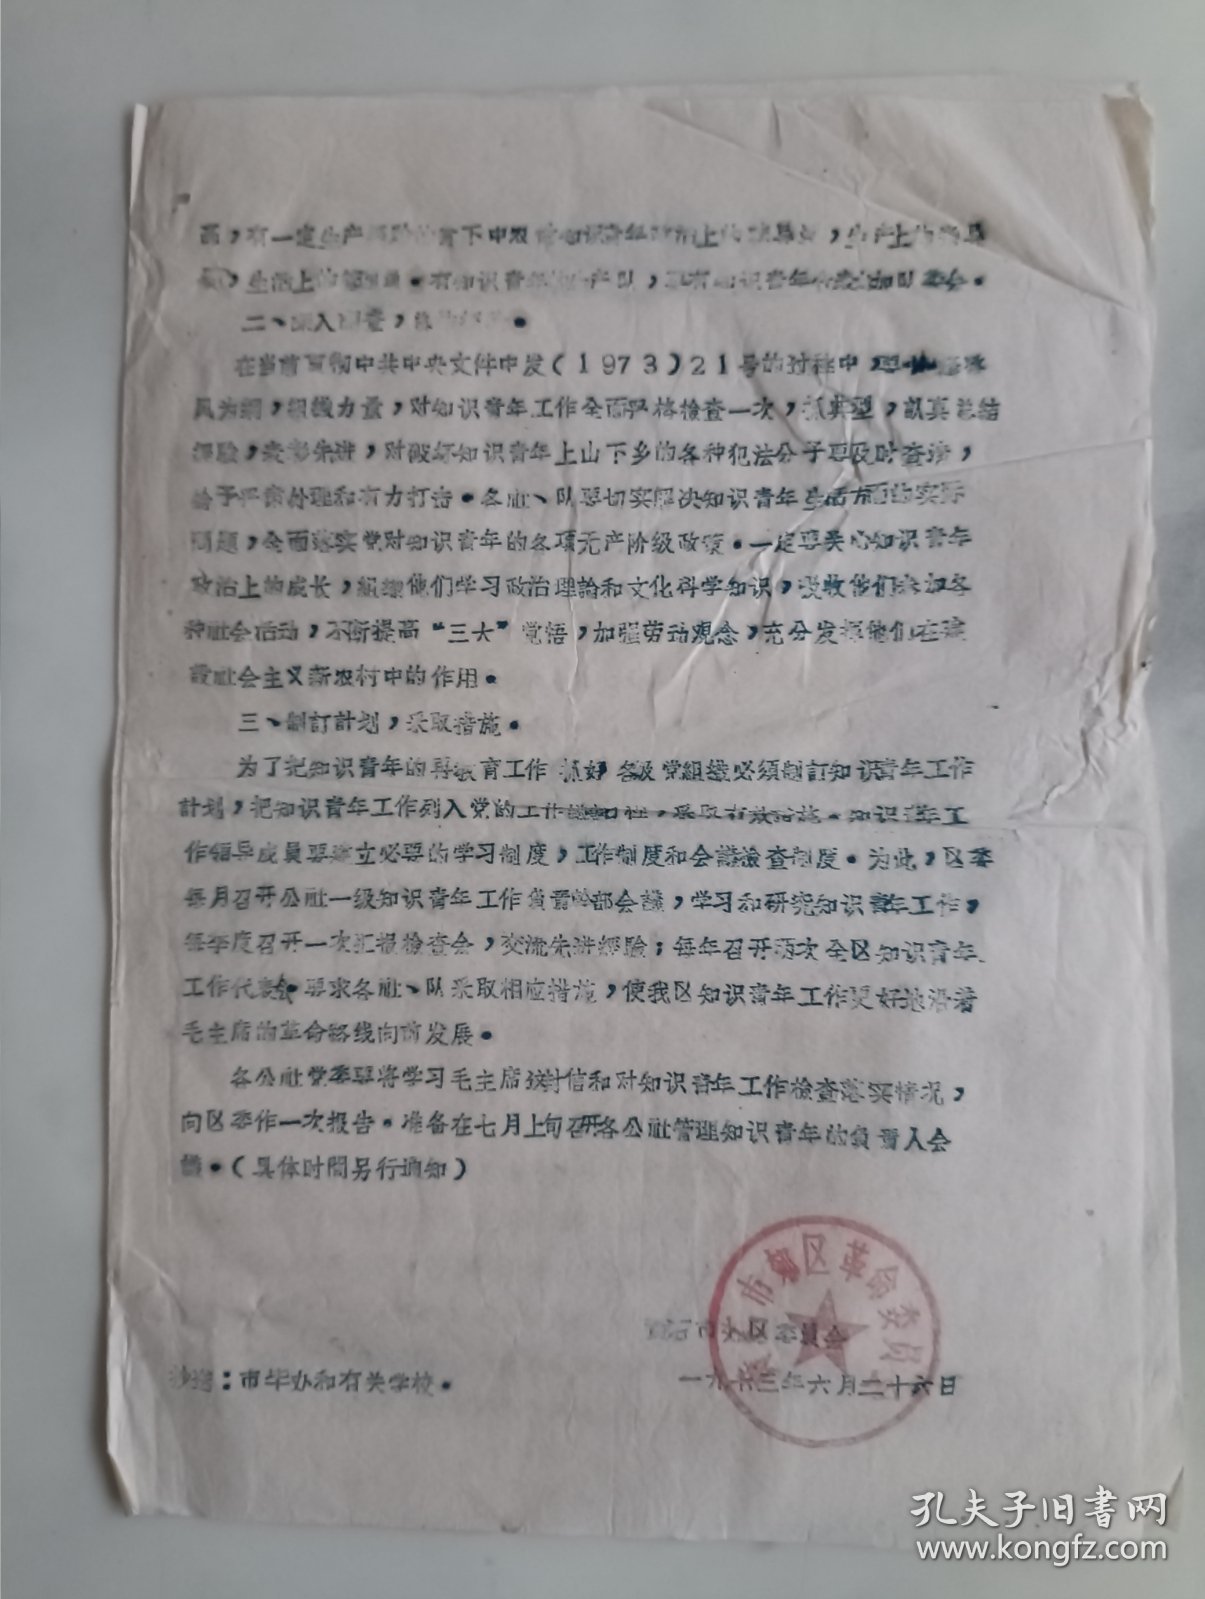 高，有一定生产经验的贫下中农当知识青年政治上的，生产上的
，生活上的管理员。有知识青年的生产队，要有知识青年参加队委会。
二、深入调查，
在当前贯彻中共中央文件中发(1973)21号的过程中，
风为纲，组织力量，对知识青年工作全面严格检查一次，抓典型，认真总结
经验，表彰先进，对破坏知识青年上山下乡的各种犯法分子要及时查清，
给予严肃处理和有力打击。各社、队要切实解决知识青年生活方面的实际
问题，全面落实党对知识青年的各项无产阶级政策。一定要关心知识青年
政治上的成长，组织他们学习政治理論和文化科学知识，吸收他们参加各
种社会活动，不断提高“三大”觉悟，加强劳动观念，充分发挥他们在建
設社会主义新农村中的作用。
三、制訂計划，采取措施。
为了把知识青年的再教育工作抓好，各级党組織必須制訂知识青年工作
計划，把知识青年工作列入党的工作議事日程，采取有效措施。知识青年工
作領导成員要建立必要的学习制度，工作制度和会議检查制度。为此，区委
每月召开公社一级知识青年工作負責幹部会議，学习和研究知识青年工作，
每季度召开一次汇报檢查会，交流先进經验；每年召开两次全区知识青年
工作代表会。要求各社、队采取相应措施，使我区知识青年工作更好地沿着
毛主席的革命路线向前发展。
各公社党委要将学习毛主席这封信和对知识青年工作檢查落实情况，
向区委作一次报告。准备在七月上旬召开各公社管理知识青年的負責人会
議。(具体时間另行通知)
市郊区革命委员
市郊区委員会
抄送：市毕办和有关学校。
一九七三年六月二十六日
孔夫子旧书网
www.kongfz.com